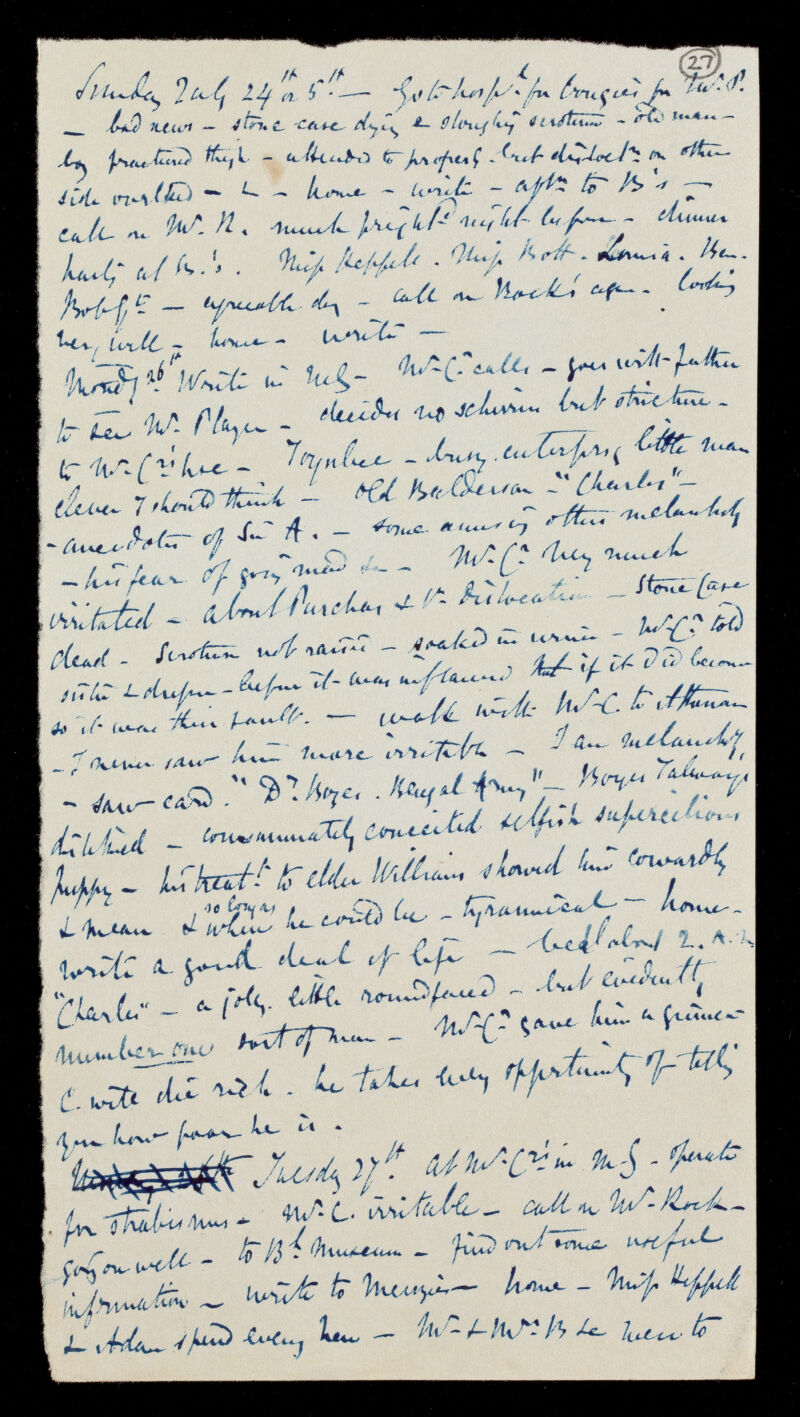 27
Sunday July 24th or 5th — Go to hospl for bougies for Mr. P.
— bad news — stone case dying & sloughing scrotum — old man —
boy fractured thigh — attended to properly but dislocatn on other
side overlked — & — home — write — aftn to B's —
call on Mr. R. much frightd night before — dinner
party at B.'s. Miss Heppell. Miss Bott. Louisa. Ben.
Bob Gt — agreeable day — call on Rock's again. looking
very well — home — write —
Mondy 26th. Write in mg — Mr C. calls — goes with father
to see Mr. Player — decides no schirrus but stricture —
to Mr. Crs hse — Toynbee — busy enterprisg little man
clever I should think — Old Balderson — "Charles" —
— anecdotes of Sir A. — some amusing others melancholy
— his fear of going mad &c — Mr. Cr. very much
irritated — about Purchas & the dislocation — Stone Case
dead — Scrotum not raised — soaked in urine — Mr Cr. told
sister & dresser — before it was inflamed that if it did become
so it was their fault. — walk with Mr C. to Athenam
— I never saw him more irritable — I am melancholy
— saw card. "Dr. Boyes. Bengal Army" — Boyes I always
disliked — consummately conceited selfish supercilious
puppy — his treatt. to elder Williams showed him cowardly
& mean & when so long as he could be — tyrannical — home —
write a good deal of life — bed about 2. A.M
"Charles" — a jolly little roundfaced — but evidently
number one sort of man — Mr Cr. gave him a guinea
C. will die rich. he takes every opportunity of tellg
you how poor he is.
Tuesday 27th. At Mr. Crs in m-g — operate
for strabismus — Mr. C. irritable — call on Mr. Rock —
gog on well — to Bh Museum — find out some useful
information — write to Menzies — home — Miss Heppell
& Adam spend eveng here — Mr & Mrs. B &c were to